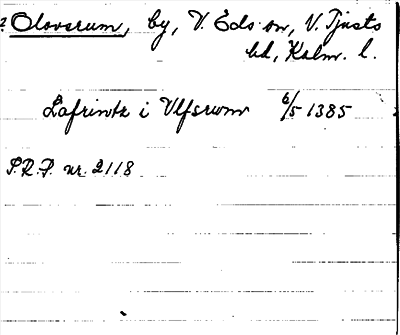 ? Oloverum, by, V. Eds sn, V. Tjusts
hd, Kalm. l.
Lafrintz i Vlfsrwm 6/5 1385
S.R.P. nr. 2118